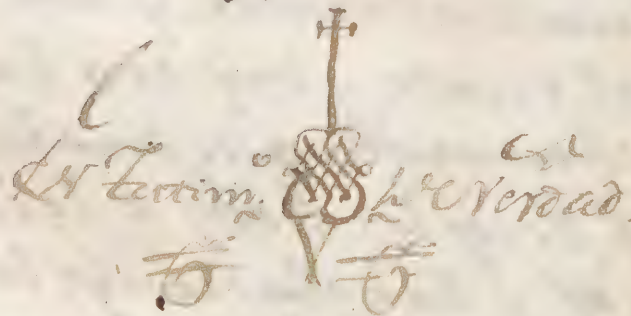 en testimo de Verdad